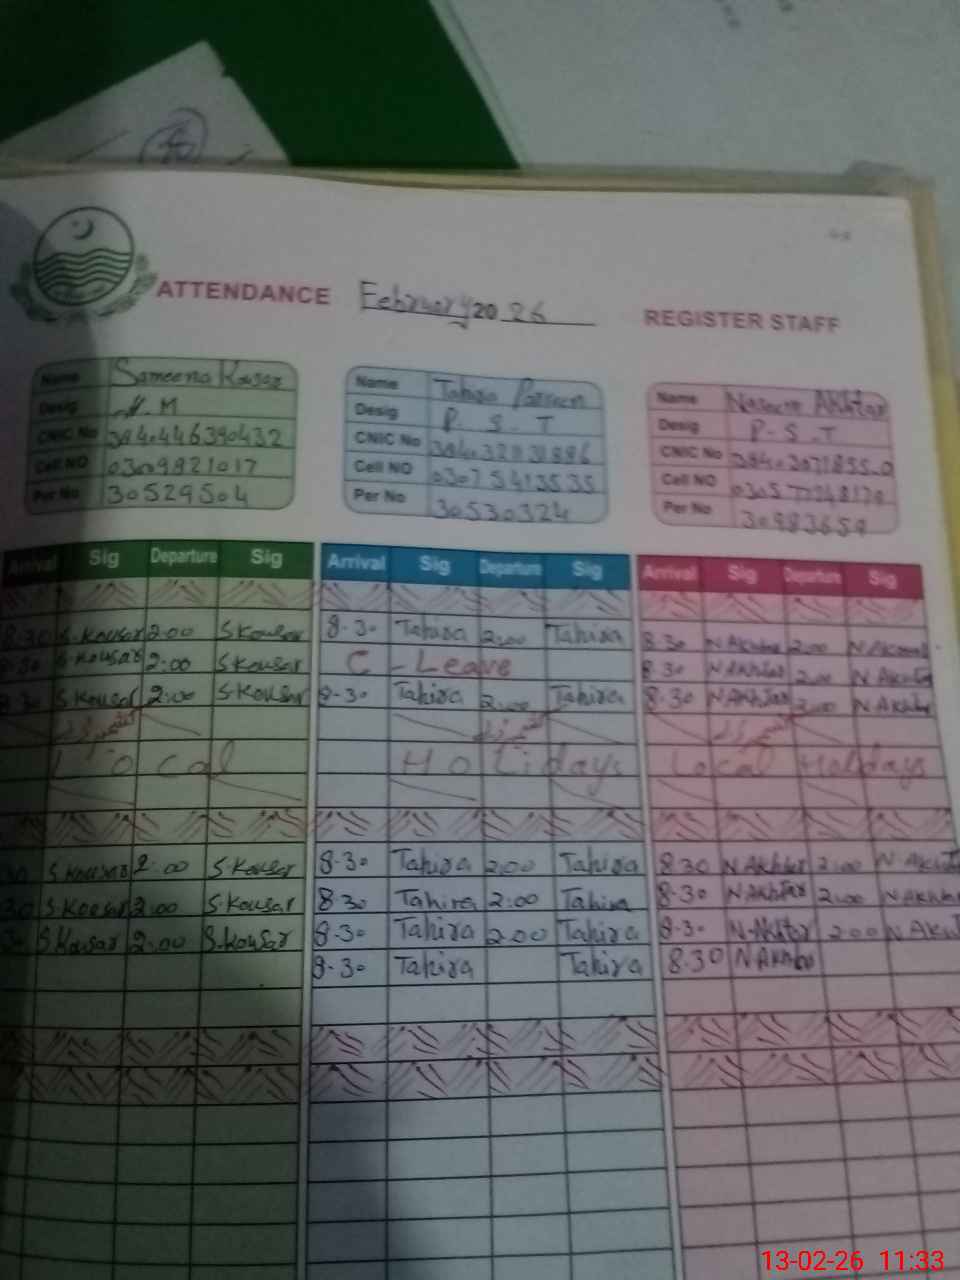 ATTENDANCE February 2026 REGISTER STAFF
Name Sameena Kousar
Desig M
CNIC No
Cell NO 03099821017
Per No 30529504
Name Tahira Parveen
Desig P. S. T
CNIC No
Cell NO 03075413535
Per No 30530324
Name Naseem Akhtar
Desig P-S.T
CNIC No
Cell NO
Per No 30983659
Arrival Sig Departure Sig Arrival Sig Departure Sig Arrival Sig Departure Sig
8.30 S.Kousar 2:00 S Kousar 8.30 Tahira 2:00 Tahira 8.30 N Akhtar 2:00 N Akhtar
8.30 S.Kousar 2:00 S Kousar C - Leave 8.30 N Akhtar 2:00 N Akhtar
8.30 S.Kousar 2:00 S.Kousar 8-30 Tahira 2:00 Tahira 8.30 N Akhtar 2:00 N Akhtar
Local Holidays Local Holidays
30 S.Kousar 2:00 S.Kousar 8.30 Tahira 2:00 Tahira 8.30 N Akhtar 2:00 N-Akht
30 S.Kousar 2:00 S.Kousar 8.30 Tahira 2:00 Tahira 8-30 N Akhtar 2:00 N Akhtar
30 S.Kousar 2:00 S.Kousar 8.30 Tahira 2:00 Tahira 8.30 N-Akhtar 2:00 N Akht
8.30 Tahira Tahira 8.30 N Akhtar
13-02-26 11:33